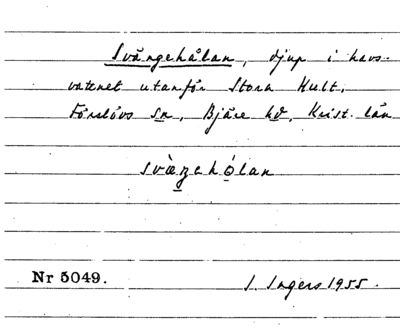 Svängehålan, djup i havs-
vattnet utanför Stora Hult.
Förslövs sn, Bjäre hd, Krist. län
Nr 5049.
I. Ingers 1955.